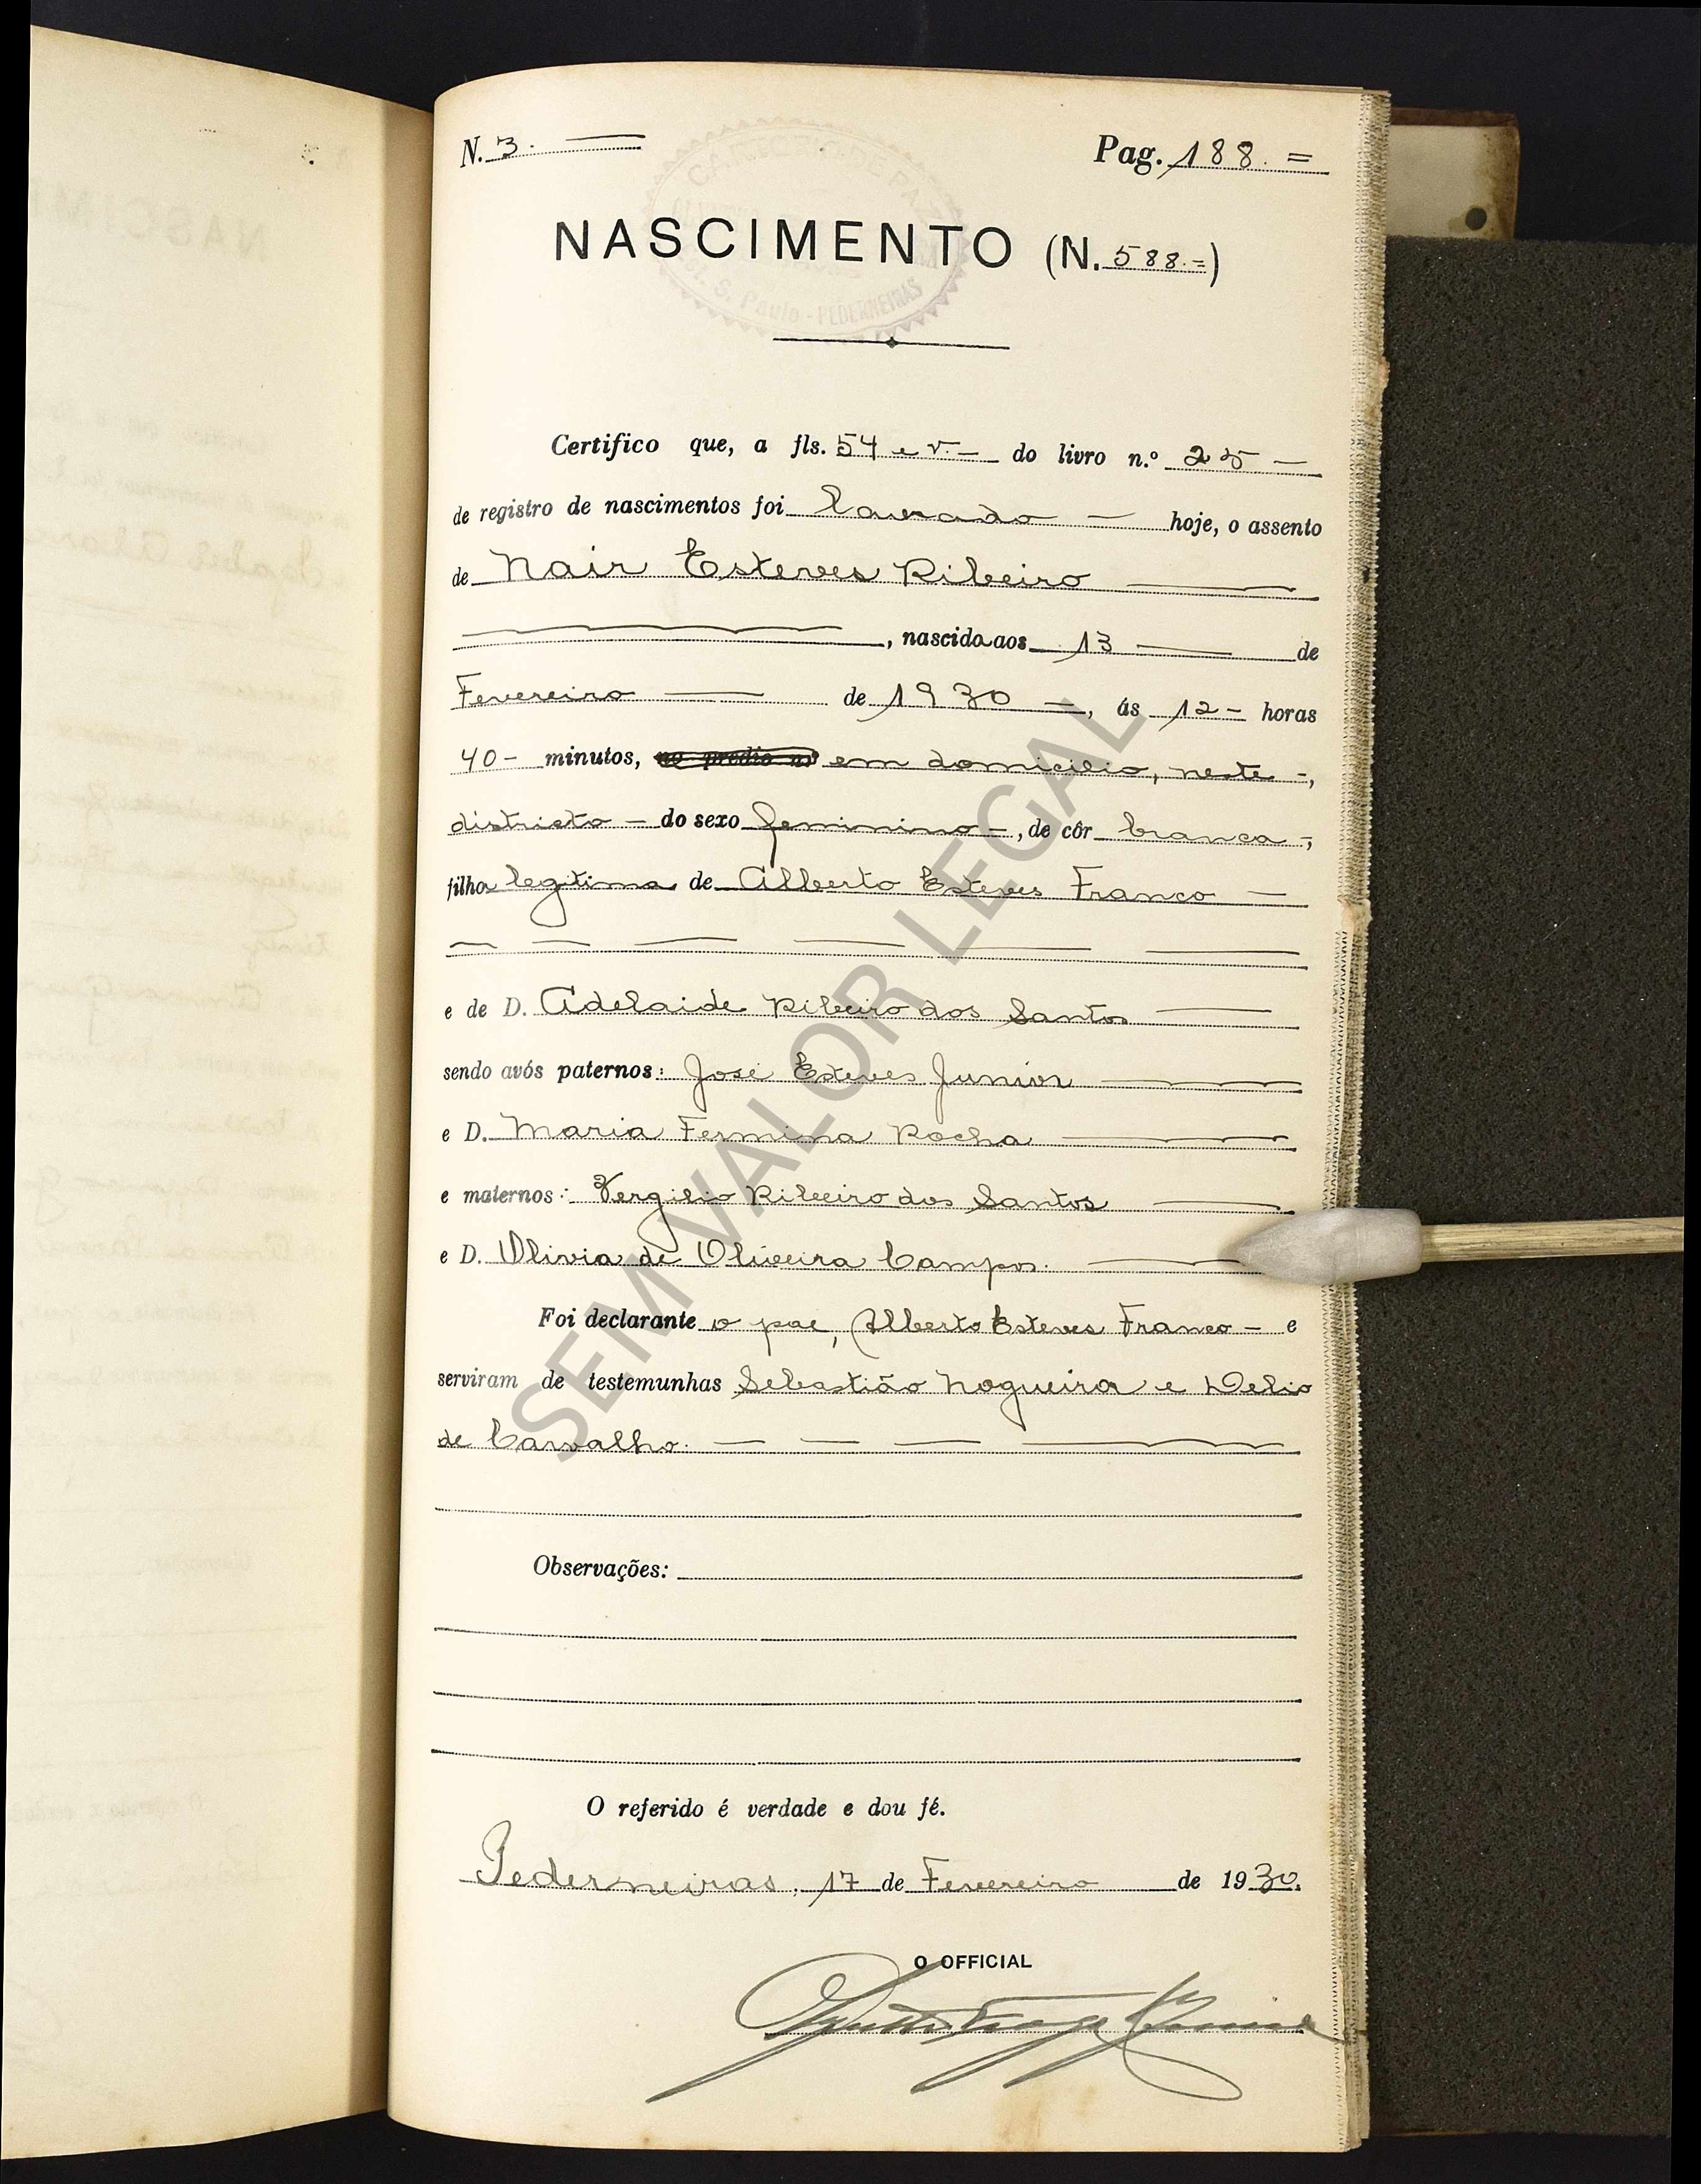 N. 3. Pag. 188. =
NASCIMENTO (N. 588.=)
Est. S. Paulo - PEDERNEIRAS
Certifico que, a fls. 54 e v. — do livro n.º 25 —
de registro de nascimentos foi lavrado — hoje, o assento
de Nair Esteves Ribeiro
, nascida aos 13 de
Fevereiro de 1930 —, ás 12 - horas
40 - minutos, no predio nº em domicilio, neste -,
districto - do sexo feminino -, de côr branca -,
filha legitima de Alberto Esteves Franco —
e de D. Adelaide Ribeiro dos Santos
sendo avós paternos: José Esteves Junior
e D. Maria Fermina Rocha
e maternos: Vergilio Ribeiro dos Santos
e D. Olivia de Oliveira Campos.
Foi declarante o pae, Alberto Esteves Franco - e
serviram de testemunhas Sebastião Nogueira e Delio
de Carvalho.
Observações:
O referido é verdade e dou fé.
Pederneiras, 17 de Fevereiro de 1930.
O OFFICIAL
SEM VALOR LEGAL